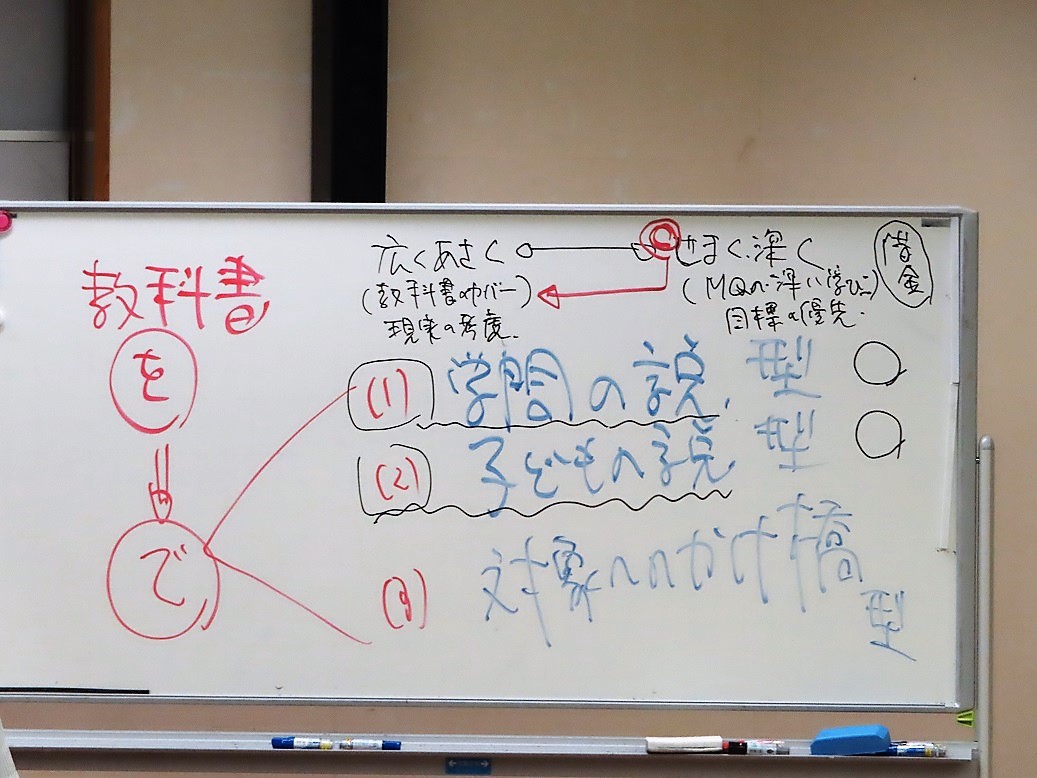 広くあさく せまく、深く
(教科書のカバー) (MQの深い学び)
現実の考慮. 目標の優先.
借金
教科書
を
で
(1) 学問の説, 型
(2) 子どもの説, 型
(3) 対象へのかけ橋
型